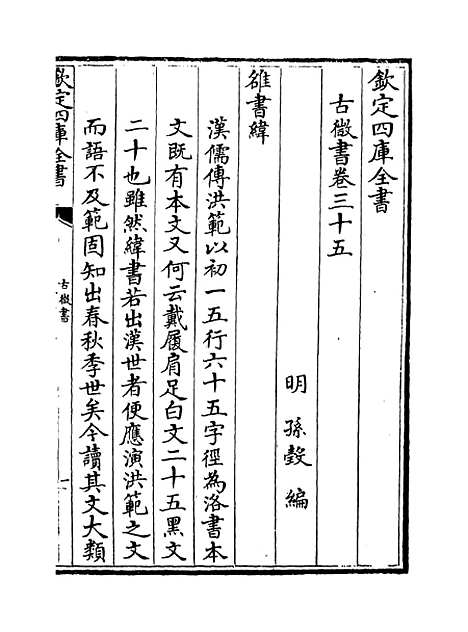 欽定四庫全書
古微書卷三十五
明 孫瑴 編
雒書緯
漢儒傳洪範以初一五行六十五字徑為洛書本
文既有本文又何云戴履肩足白文二十五黑文
二十也雖然緯書若出漢世者便應演洪範之文
而語不及範固知出春秋季世矣今讀其文大類
欽定四庫全書
古微書
一